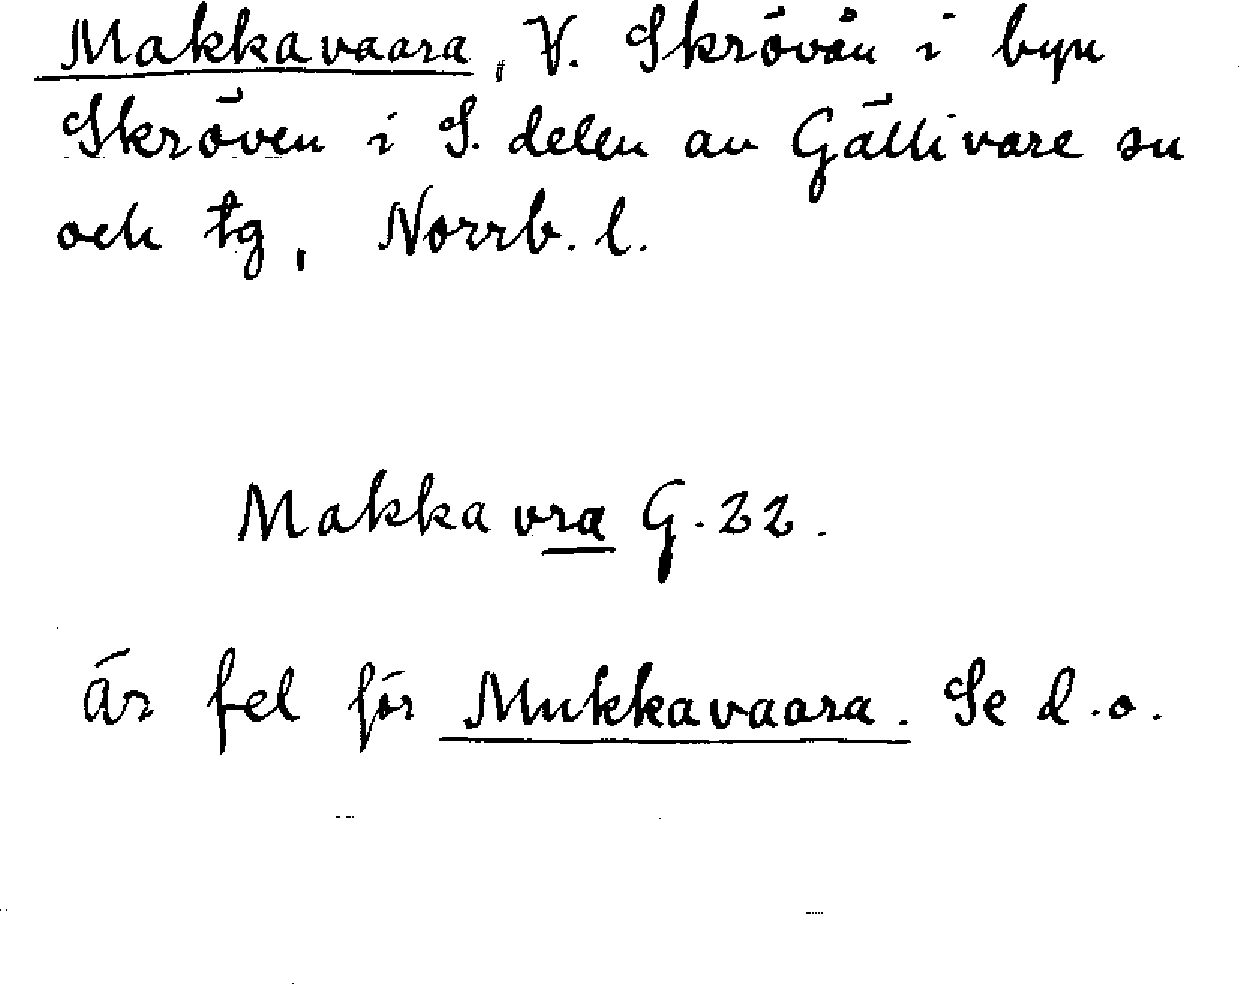 Makkavaara, V. Skrövån i byn
Skröven i S. delen av Gällivare sn
och tg, Norrb. l.
Makkavra G. 22.
Är fel för Mukkavaara. Se d.o.